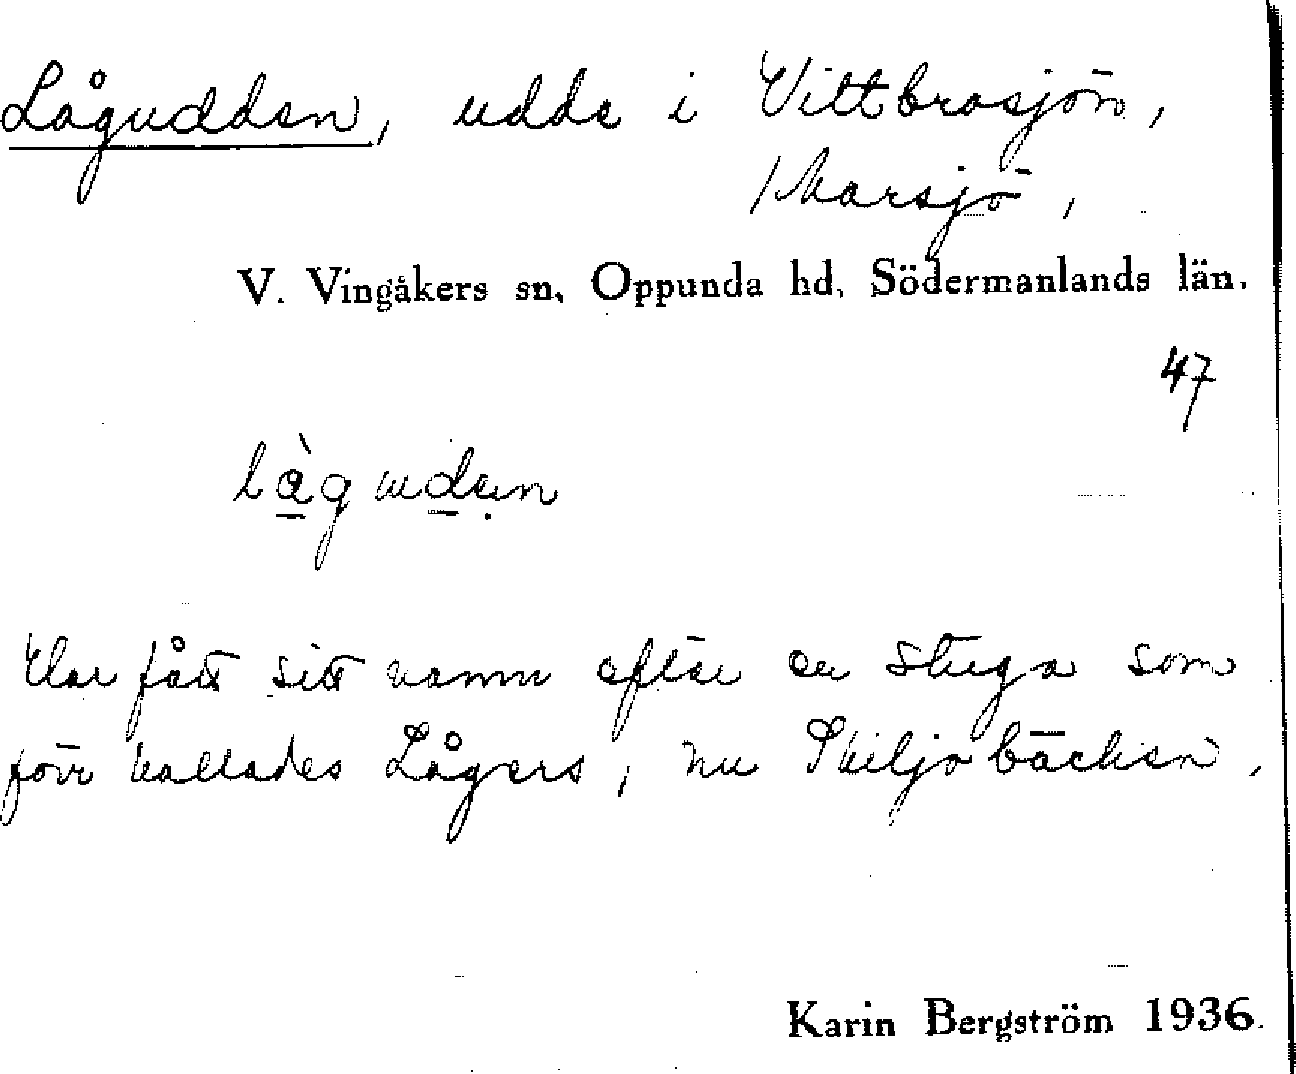 Lågudden, udde i Vittbrosjön,
Marsjö,
V. Vingåkers sn, Oppunda hd, Södermanlands län.
47
làguden
Har fått sitt namn efter en stuga som
förr kallades Lågers, nu Skiljobäcken.
Karin Bergström 1936.